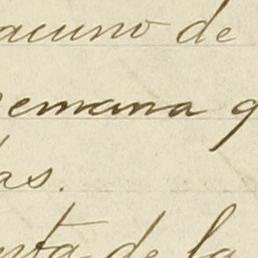 acuno de
semana q
das.
esta de la